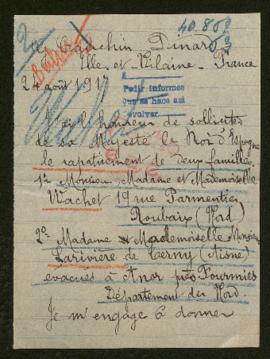 40.853
Dinard
Ille et Vilaine - France
24 août 1917
Pedir informes
que se hace asi
J'ai l'honneur de solliciter
de sa Majesté le Roi d'Espagne
le rapatriement de deux familles
1º Monsieur Madame et Mademoiselle
Wachet 19 rue Parmentier
Roubaix (Nord)
2º Madame et Mademoiselle
Larivière de Cerny (Aisne)
évacués à Anor près Fourmies
Département du Nord.
Je m'engage à donner